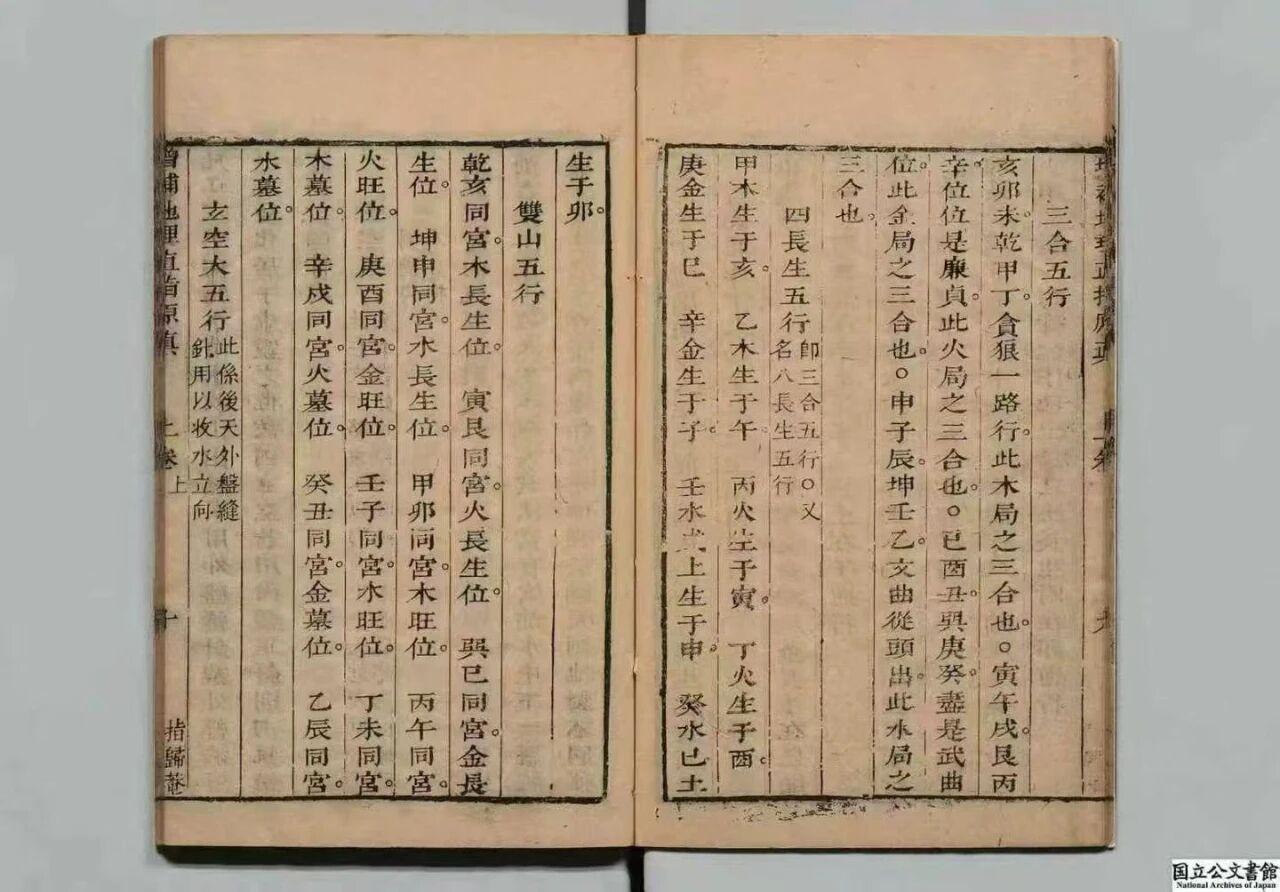 三合五行
亥卯未。乾甲丁。貪狼一路行。此木局之三合也。○寅午戌。艮丙
辛。位位是廉貞。此火局之三合也。○巳酉丑。巽庚癸。盡是武曲
位。此金局之三合也。○申子辰。坤壬乙。文曲從頭出。此水局之
三合也。
四長生五行 即三合五行○又
名八長生五行
甲木生于亥。 乙木生于午 丙火生于寅。 丁火生于酉。
庚金生于巳 辛金生于子。 壬水戊土生于申。 癸水己土
生于卯。
雙山五行
乾亥同宮。木長生位。 寅艮同宮。火長生位。 巽巳同宮。金長
生位。 坤申同宮。水長生位。 甲卯同宮。木旺位。 丙午同宮。
火旺位。 庚酉同宮。金旺位。 壬子同宮。水旺位。 丁未同宮。
木墓位。 辛戌同宮。火墓位。 癸丑同宮。金墓位。 乙辰同宮。
水墓位。
玄空大五行 此係後天外盤縫
針用以收水立向
增補地理直指原真 上卷上 十 指歸菴
国立公文書館
National Archives of Japan